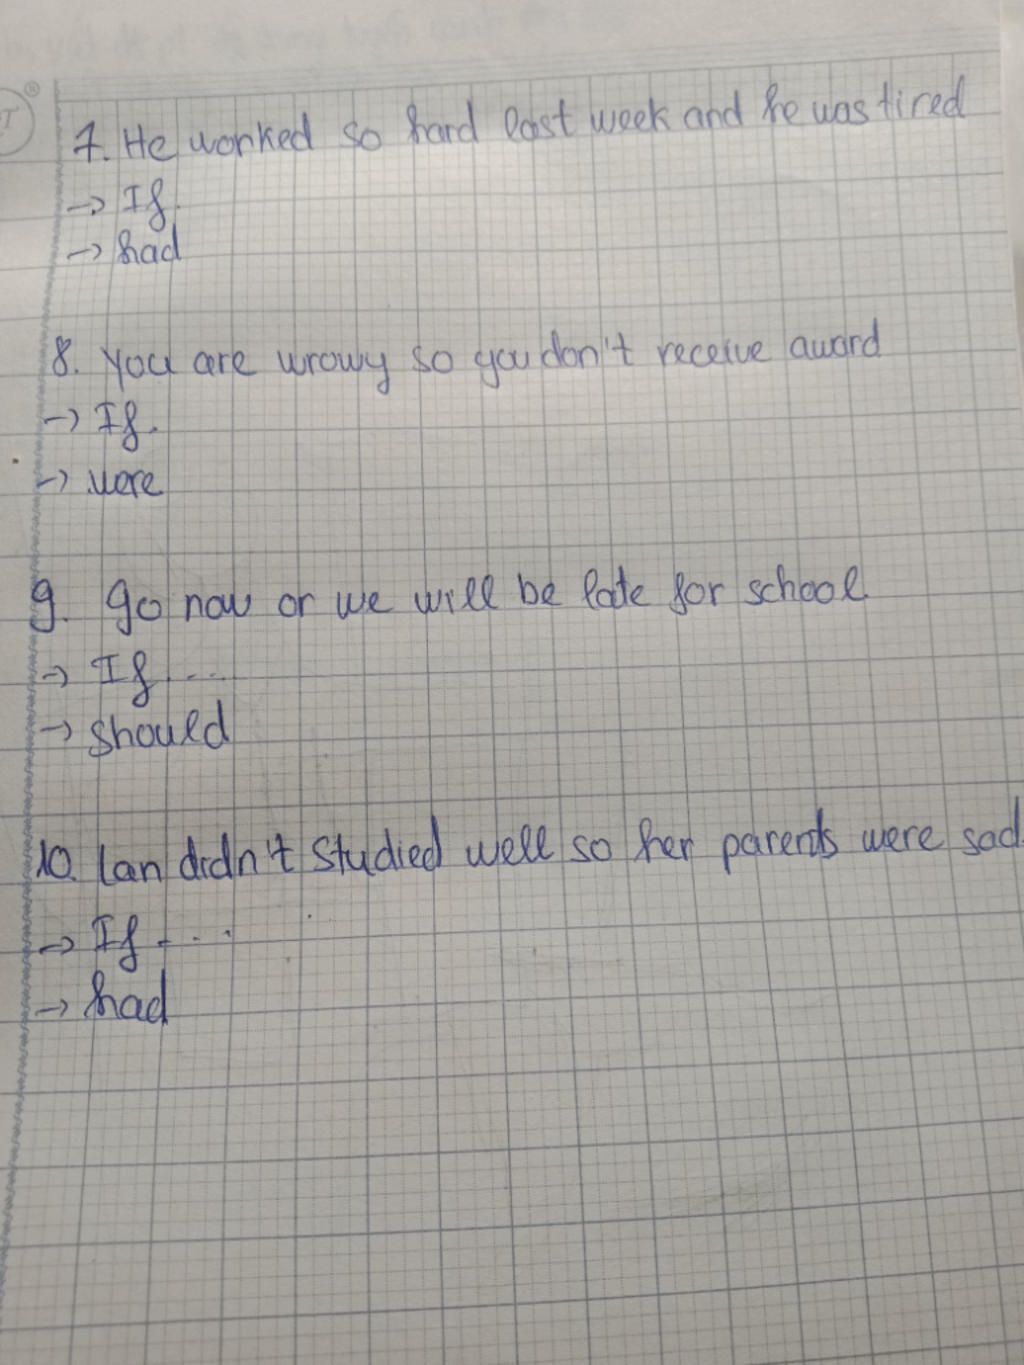 7. He worked so hard last week and he was tired
→ If.
→ had
8. you are wrowy so you don't receive award
→ If.
→ were
9. go now or we will be late for school
→ If ...
→ should
10. lan didn't studied well so her parents were sad
→ If ...
→ had